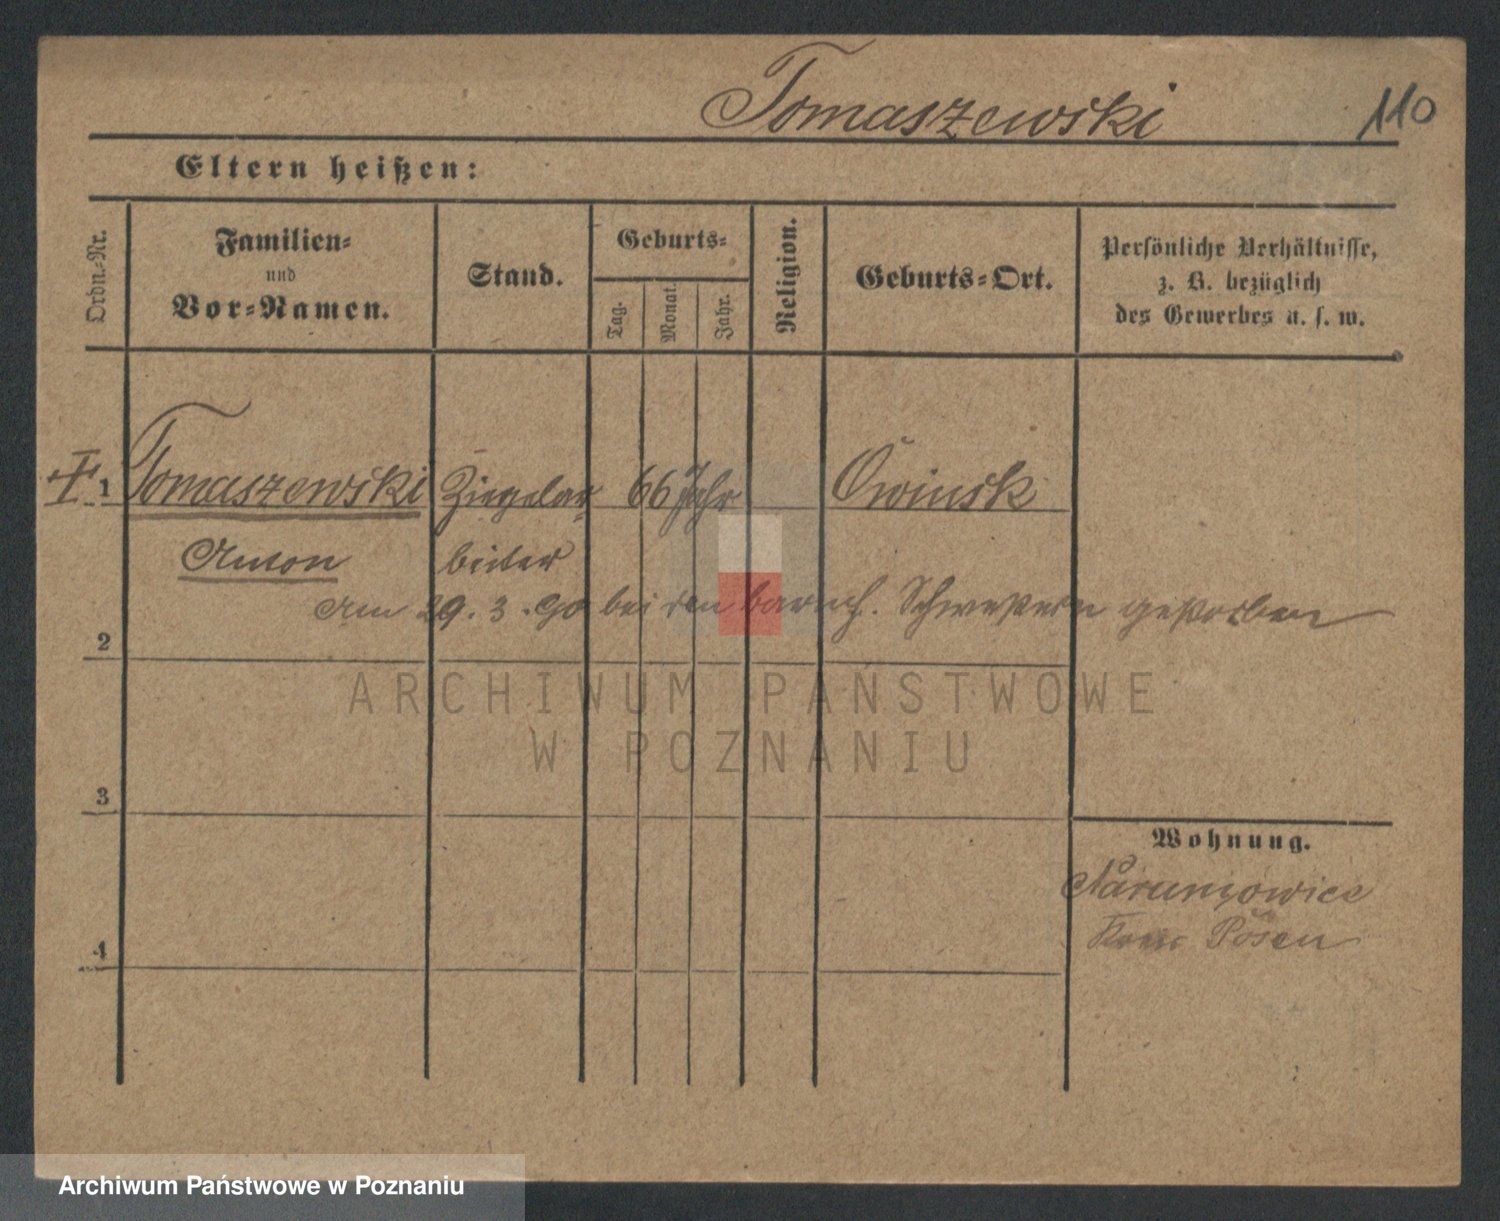 Tomaszewski 110
Eltern heißen:
Ordn.-Nr.
Familien-
und
Vor-Namen.
Stand.
Geburts-
Tag.
Monat.
Jahr.
Religion.
Geburts-Ort.
Persönliche Verhältnisse,
z. B. bezüglich
des Gewerbes u. s. w.
1 Tomaszewski Ziegelar 66 Jahr Owinsk
Anton beiter
Am 29. 3. 90 bei den barmh. Schwestern gestorben
2
ARCHIWUM PAŃSTWOWE
W POZNANIU
3
Wohnung.
Naramowice
Posen
4
Archiwum Państwowe w Poznaniu